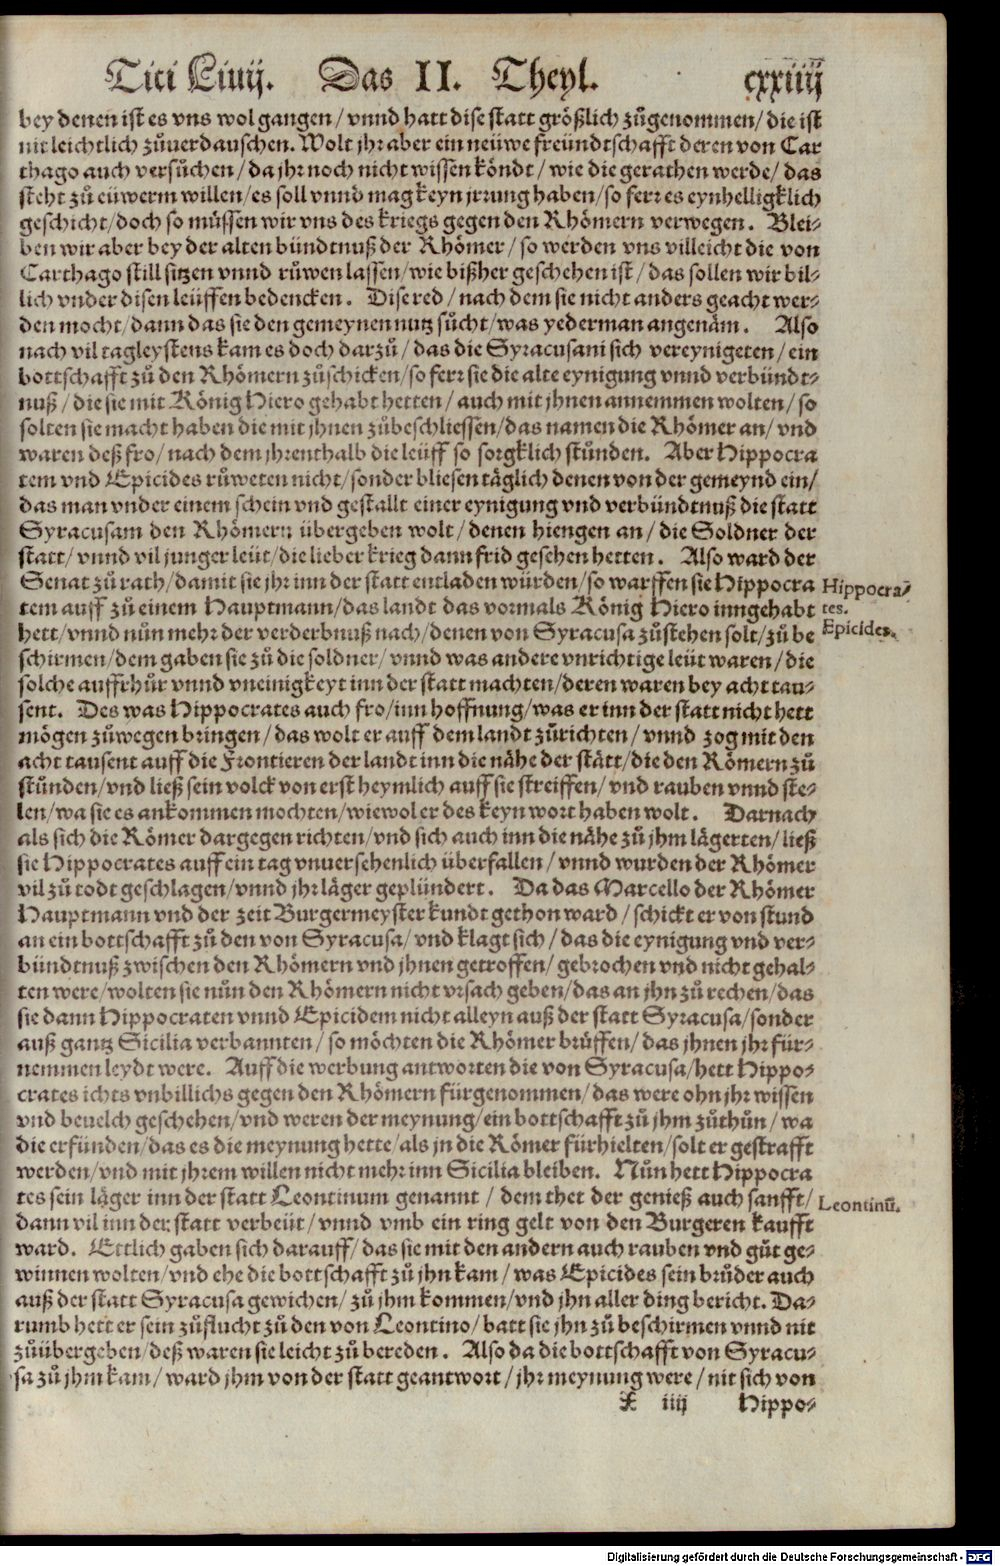 Titi Liuij. Das II. Theyl. cxxiiij
bey denen ist es vns wol gangen/ vnnd hatt dise statt größlich zůgenommen/ die ist
nit leichtlich zůuerdauschen. Wolt jhr aber ein neüwe freündtschafft deren von Car
thago auch versůchen/ da jhr noch nicht wissen köndt/ wie die gerathen werde/ das
steht zů eüwerm willen/ es soll vnnd mag keyn jrrung haben/ so ferr es eynhelligklich
geschicht/ doch so müssen wir vns des kriegs gegen den Rhömern verwegen. Blei-
ben wir aber bey der alten bündtnuß der Rhömer/ so werden vns villeicht die von
Carthago still sitzen vnnd růwen lassen/ wie bißher geschehen ist/ das sollen wir bil-
lich vnder disen leüffen bedencken. Dise red/ nach dem sie nicht anders geacht wer-
den mocht/ dann das sie den gemeynen nutz sůcht/ was yederman angenäm. Also
nach vil tagleystens kam es doch darzů/ das die Syracusani sich vereynigeten/ ein
bottschafft zů den Rhömern zůschicken/ so ferr sie die alte eynigung vnnd verbündt-
nuß/ die sie mit König Hiero gehabt hetten/ auch mit jhnen annemmen wolten/ so
solten sie macht haben die mit jhnen zůbeschliessen/ das namen die Rhömer an/ vnd
waren deß fro/ nach dem jhrenthalb die leüff so sorgklich stůnden. Aber Hippocra
tem vnd Epicides růweten nicht/ sonder bliesen täglich denen von der gemeynd ein/
das man vnder einem schein vnd gestallt einer eynigung vnd verbündtnuß die statt
Syracusam den Rhömern übergeben wolt/ denen hiengen an/ die Soldner der
statt/ vnnd vil junger leüt/ die lieber krieg dann frid gesehen hetten. Also ward der
Senat zů rath/ damit sie jhr inn der statt entladen würden/ so warffen sie Hippocra
tem auff zů einem Hauptmann/ das landt das vormals König Hiero inngehabt
hett/ vnnd nůn mehr der verderbnuß nach/ denen von Syracusa zůstehen solt/ zů be
schirmen/ dem gaben sie zů die soldner/ vnnd was andere vnrichtige leüt waren/ die
solche auffrhůr vnnd vneinigkeyt inn der statt machten/ deren waren bey acht tau-
sent. Des was Hippocrates auch fro/ inn hoffnung/ was er inn der statt nicht hett
mögen zůwegen bringen/ das wolt er auff dem landt zůrichten/ vnnd zog mit den
acht tausent auff die Frontieren der landt inn die nähe der stätt/ die den Römern zů
stůnden/ vnd ließ sein volck von erst heymlich auff sie streiffen/ vnd rauben vnnd ste-
len/ wa sie es ankommen mochten/ wiewol er des keyn wort haben wolt. Darnach
als sich die Römer dargegen richten/ vnd sich auch inn die nähe zů jhm lägerten/ ließ
sie Hippocrates auff ein tag vnuersehenlich überfallen/ vnnd wurden der Rhömer
vil zů todt geschlagen/ vnnd jhr läger geplündert. Da das Marcello der Rhömer
Hauptmann vnd der zeit Burgermeyster kundt gethon ward/ schickt er von stund
an ein bottschafft zů den von Syracusa/ vnd klagt sich/ das die eynigung vnd ver-
bündtnuß zwischen den Rhömern vnd jhnen getroffen/ gebrochen vnd nicht gehal-
ten were/ wolten sie nůn den Rhömern nicht vrsach geben/ das an jhn zů rechen/ das
sie dann Hippocraten vnnd Epicidem nicht alleyn auß der statt Syracusa/ sonder
auß gantz Sicilia verbannten/ so möchten die Rhömer brüffen/ das jhnen jhr für-
nemmen leydt were. Auff die werbung antworten die von Syracusa/ hett Hippo-
crates ichts vnbillichs gegen den Rhömern fürgenommen/ das were ohn jhr wissen
vnd beuelch geschehen/ vnd weren der meynung/ ein bottschafft zů jhm zůthůn/ wa
die erfünden/ das es die meynung hette/ als jn die Römer fürhielten/ solt er gestrafft
werden/ vnd mit jhrem willen nicht mehr inn Sicilia bleiben. Nůn hett Hippocra
tes sein läger inn der statt Leontinum genannt/ dem thet der genieß auch sanfft/
dann vil inn der statt verbeüt/ vnnd vmb ein ring gelt von den Burgeren kaufft
ward. Ettlich gaben sich darauff/ das sie mit den andern auch rauben vnd gůt ge-
winnen wolten/ vnd ehe die bottschafft zů jhn kam/ was Epicides sein brůder auch
auß der statt Syracusa gewichen/ zů jhm kommen/ vnd jhn aller ding bericht. Da-
rumb hett er sein zůflucht zů den von Leontino/ batt sie jhn zů beschirmen vnnd nit
zůübergeben/ deß waren sie leicht zů bereden. Also da die bottschafft von Syracu-
sa zů jhm kam/ ward jhm von der statt geantwort/ jhr meynung were/ nit sich von
X iiij Hippo-
Hippocra-
tes.
Epicides.
Leontinū.
Digitalisierung gefördert durch die Deutsche Forschungsgemeinschaft - DFG